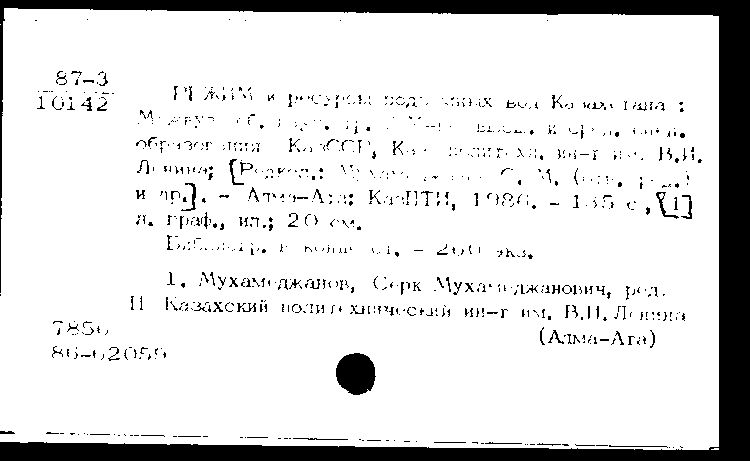 87-3
10142
РЕЖИМ и ресурсы подземных вод Казахстана :
Межвуз. сб. науч. тр. / М-во высш. и сред. спец.
образования КазССР, Каз. политехн. ин-т им. В.И.
Ленина; [Редкол.: Мухамеджанов С. М. (отв. ред.)
и др.]. - Алма-Ата: КазПТИ, 1986. - 135 с., [1]
л. граф., ил.; 20 см.
Библиогр. в конце ст. - 200 экз.
1. Мухамеджанов, Серк Мухамеджанович, ред.
II Казахский политехнический ин-т им. В.И. Ленина
(Алма-Ата)
7856
86-62059